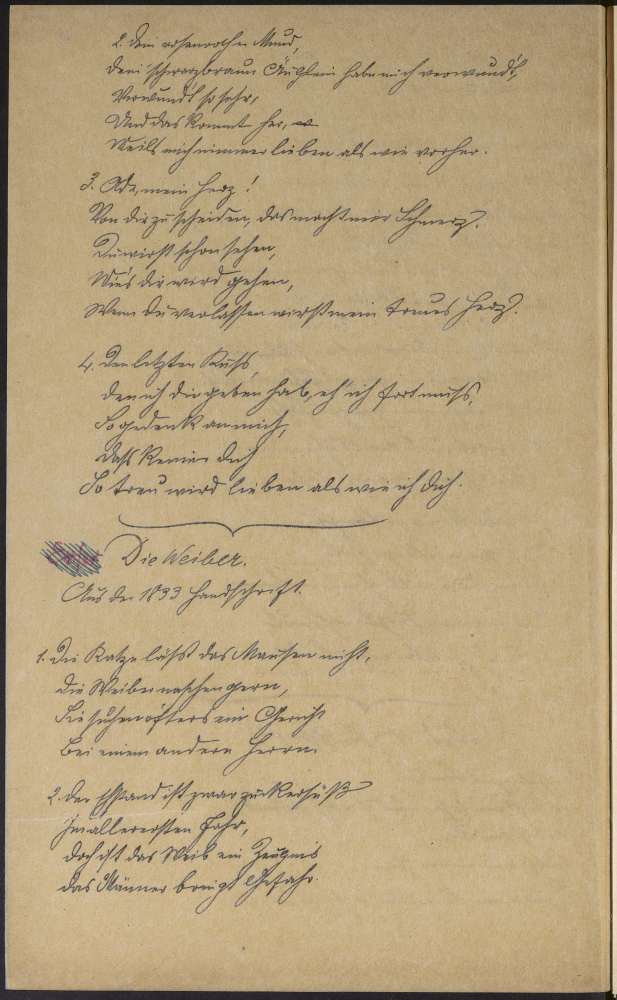 2. Dein rosenrother Mund,
Dein schwarzbraun Äuglein habn mich verwundt,
Verwundt so sehr,
Und das kommt her,
Weils mich nimmer lieben als wie vorher.
3. Ade, mein Herz!
Von dir zu scheiden, das macht mir Schmerz.
Du wirst schon sehen,
Wie's dir wird gehen,
Wenn du verlassen wirst mein treues Herz.
4. Den letzten Kuss,
den ich dir geben hab, eh' ich fort muss,
So gedenk an mich,
Dass Keiner dich
So treu wird lieben als wie ich dich.
Die Weiber.
Aus der 1833 Handschrift.
1. Die Katze lässt das Mausen nicht,
die Weiber naschen gern,
Sie suchen öfters ein Gericht
Bei einem andern Herrn.
2. Der Ehstand ist zwar zuckersüß
Im allerersten Jahr,
doch ist das Weib ein
das Männer bringt Gefahr.